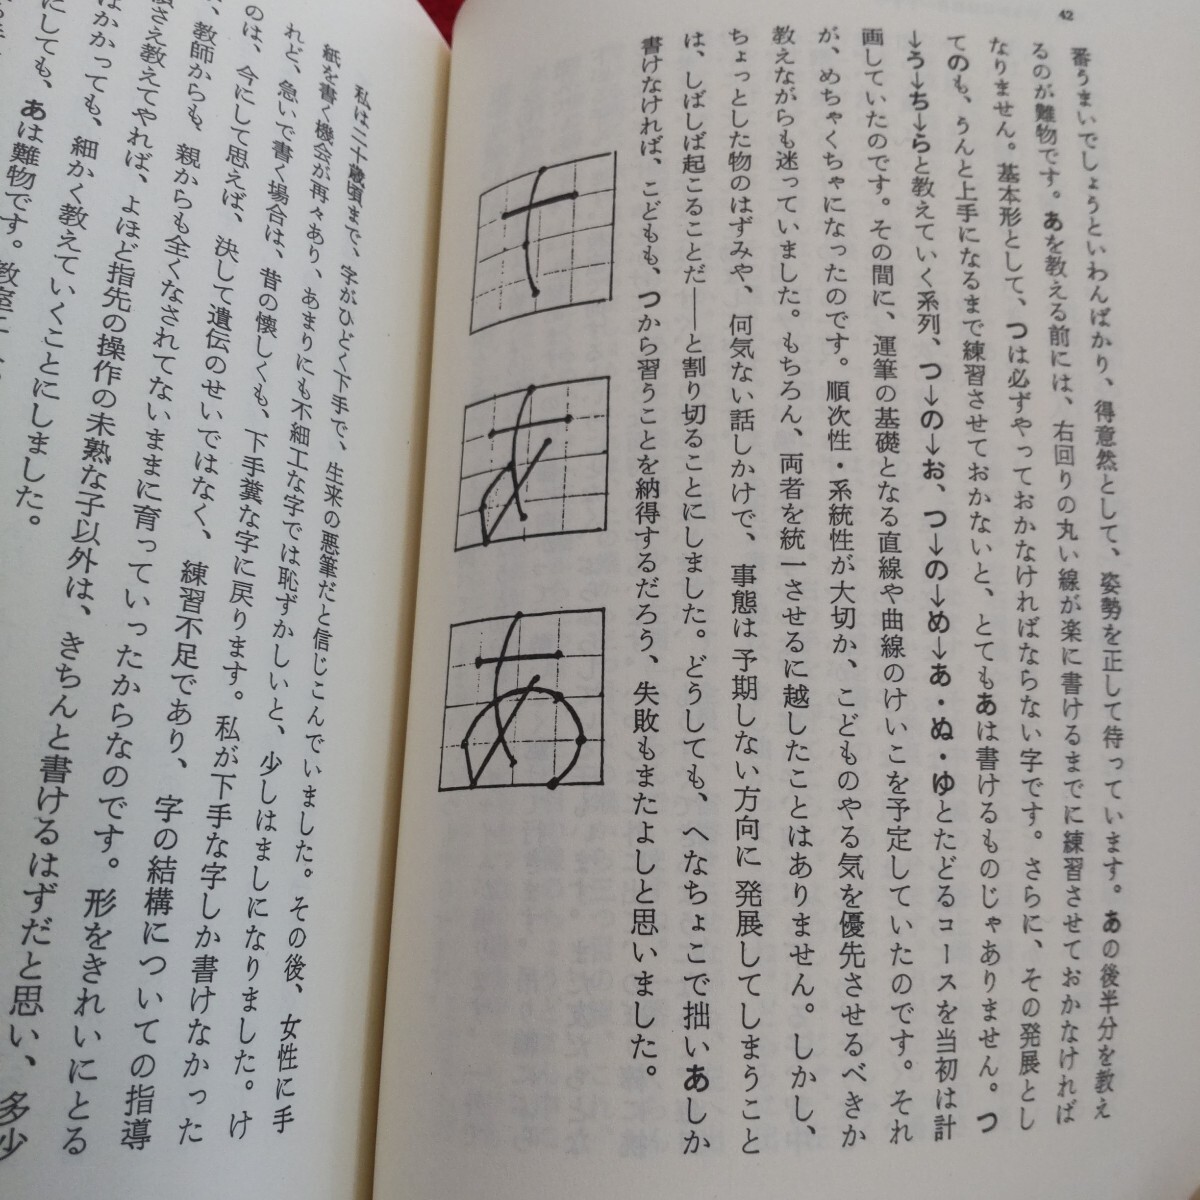 42
番うまいでしょうといわんばかり、得意然として、姿勢を正して待っています。あの後半分を教え
るのが難物です。あを教える前には、右回りの丸い線が楽に書けるまでに練習させておかなければ
なりません。基本形として、つは必ずやっておかなければならない字です。さらに、その発展とし
てのも、うんと上手になるまで練習させておかないと、とてもあは書けるものじゃありません。つ
→う→ち→らと教えていく系列、つ→の→お、つ→の→め→あ・ぬ・ゆとたどるコースを当初は計
画していたのです。その間に、運筆の基礎となる直線や曲線のけいこを予定していたのです。それ
が、めちゃくちゃになったのです。順次性・系統性が大切か、こどものやる気を優先させるべきか
教えながらも迷っていました。もちろん、両者を統一させるに越したことはありません。しかし、
ちょっとした物のはずみや、何気ない話しかけで、事態は予期しない方向に発展してしまうこと
は、しばしば起こることだ――と割り切ることにしました。どうしても、へなちょこで拙いあしか
書けなければ、こどもも、つから習うことを納得するだろう、失敗もまたよしと思いました。
あ
私は二十歳頃まで、字がひどく下手で、生来の悪筆だと信じこんでいました。その後、女性に手
紙を書く機会が再々あり、あまりにも不細工な字では恥ずかしいと、少しはましになりました。け
れど、急いで書く場合は、昔の懐しくも、下手糞な字に戻ります。私が下手な字しか書けなかった
のは、今にして思えば、決して遺伝のせいではなく、練習不足であり、字の結構についての指導
、教師からも、親からも全くなされてないままに育っていったからなのです。形をきれいにとる
さえ教えてやれば、よほど指先の操作の未熟な子以外は、きちんと書けるはずだと思い、多少
はかかっても、細かく教えていくことにしました。
にしても、あは難物です。教室に